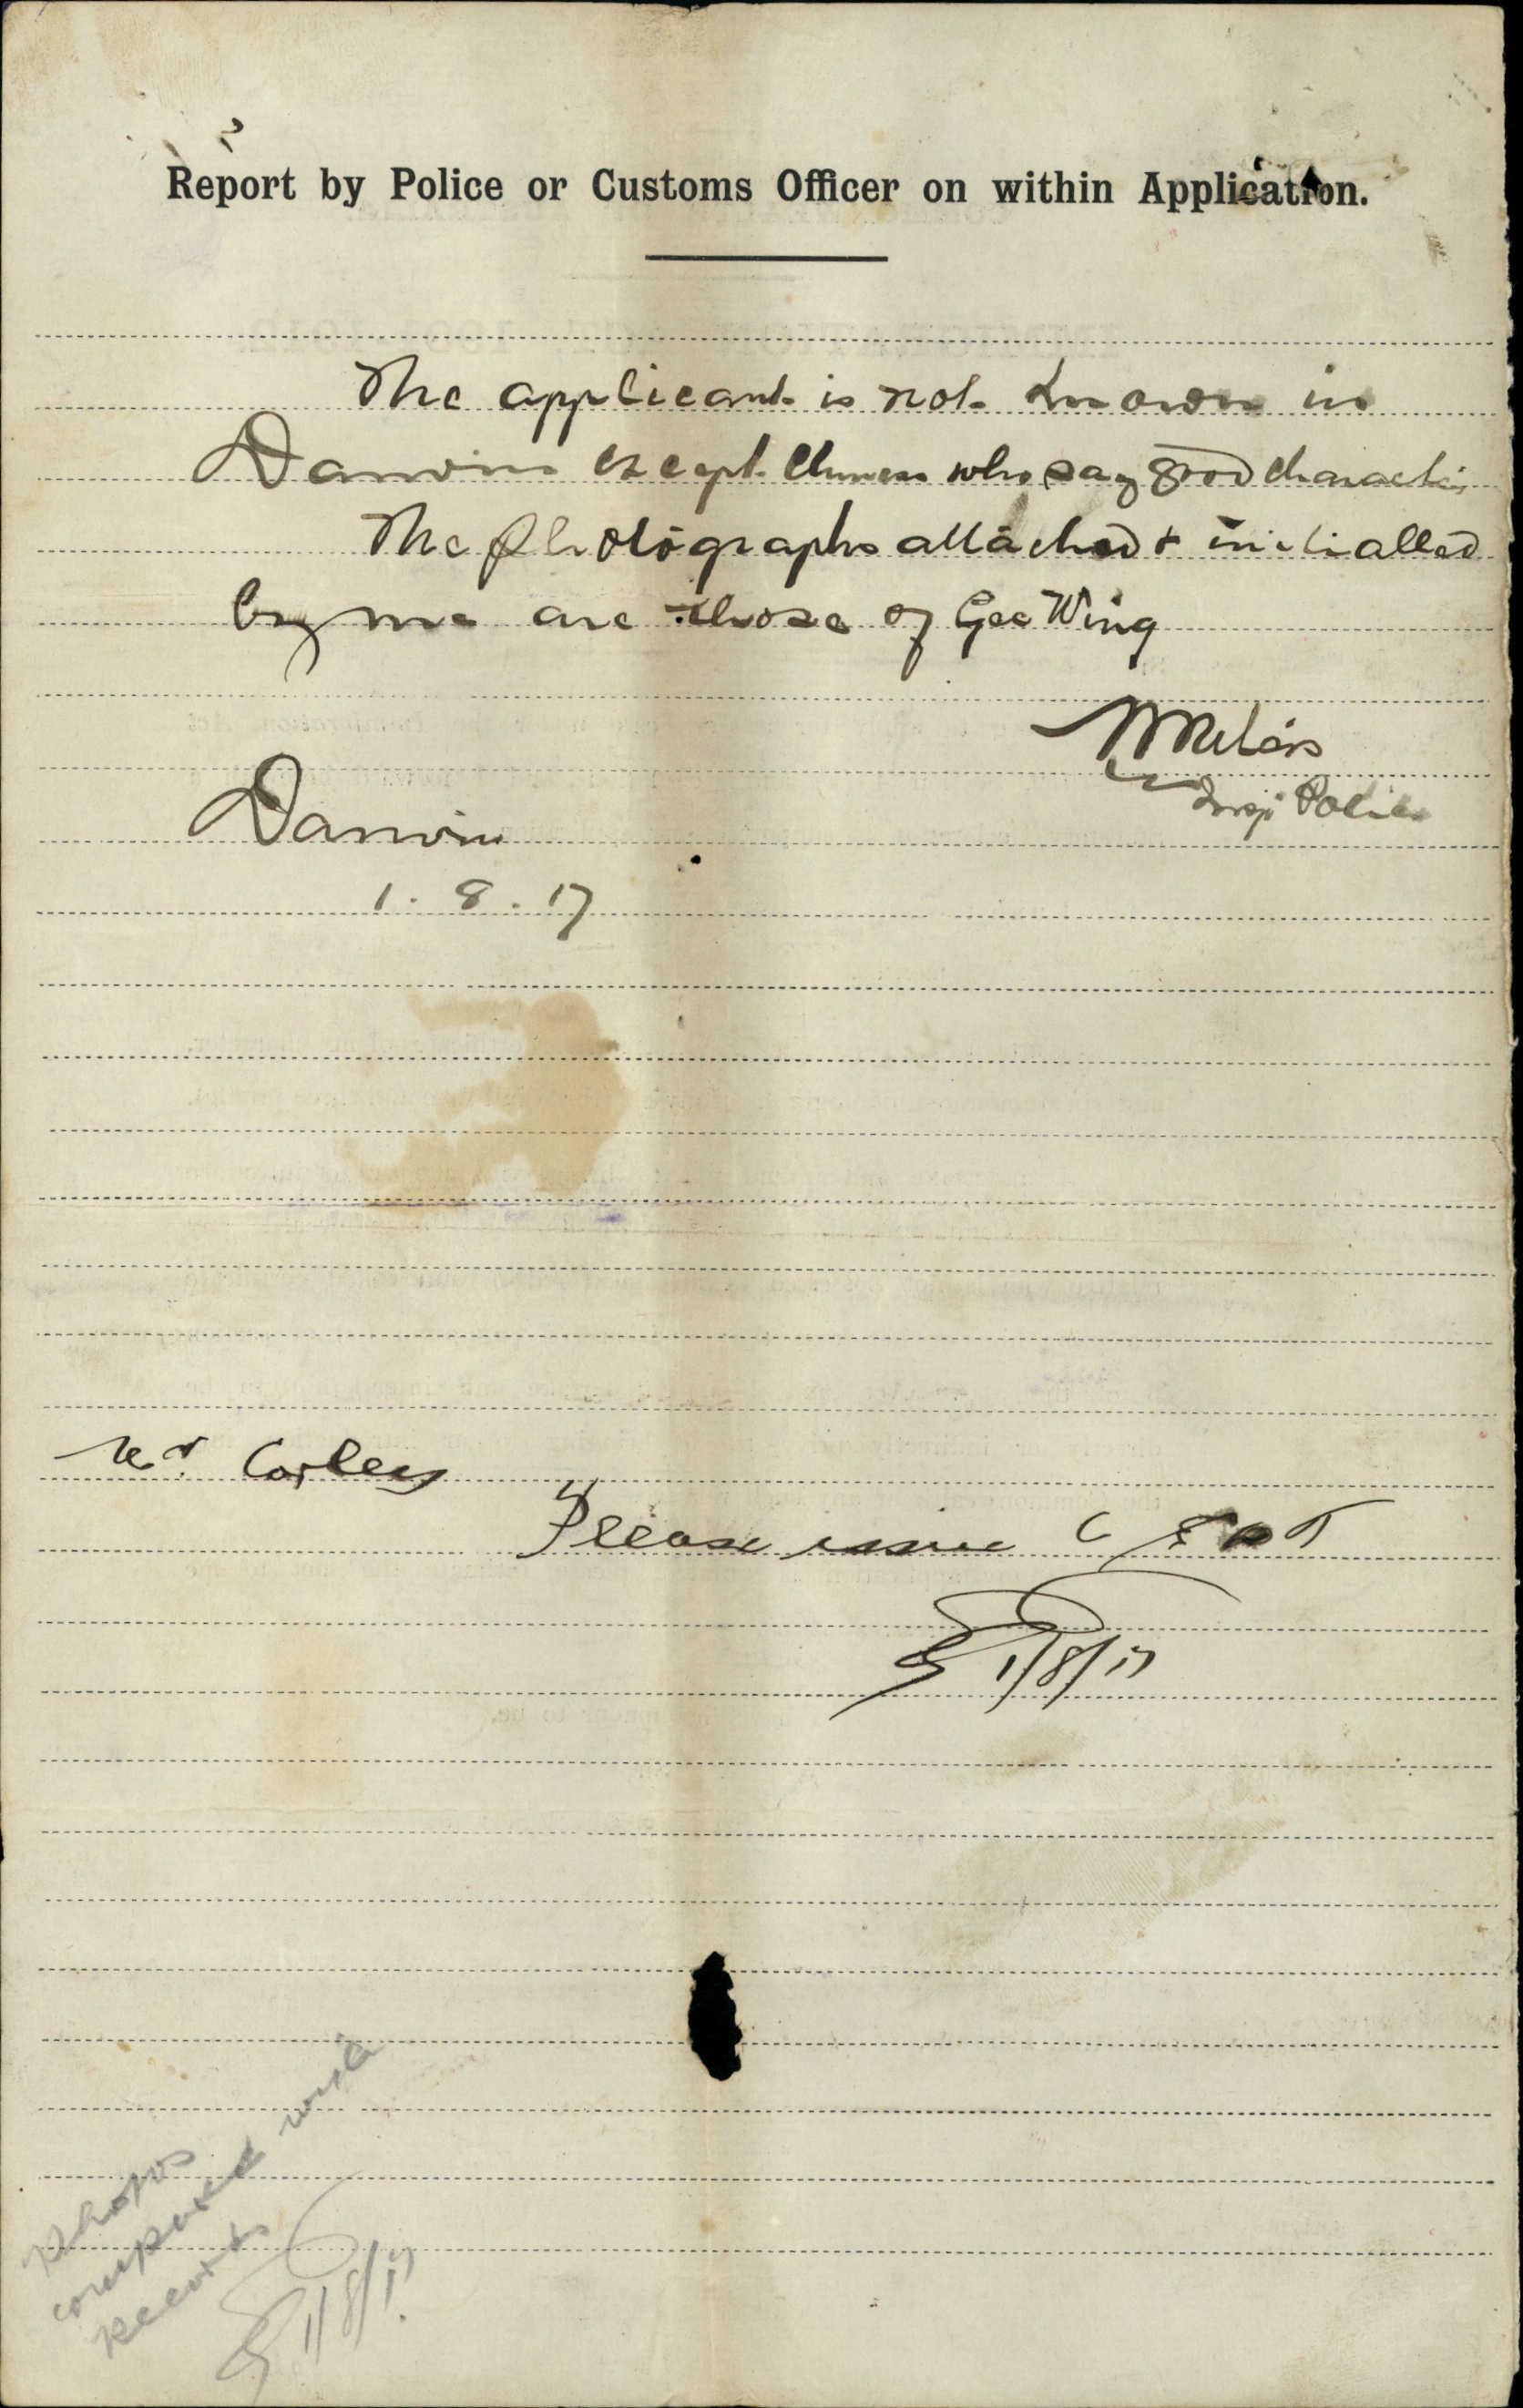 Report by Police or Customs Officer on within Application.
The applicant is not known in
Darwin except Chinese who say good character
The photographs attached & initialled
by me are those of Gee Wing
Insp Police
Darwin
1.8.17
Mr. Corley
Please issue C E D T
1/8/17
Photos
compared with
records
1/8/17